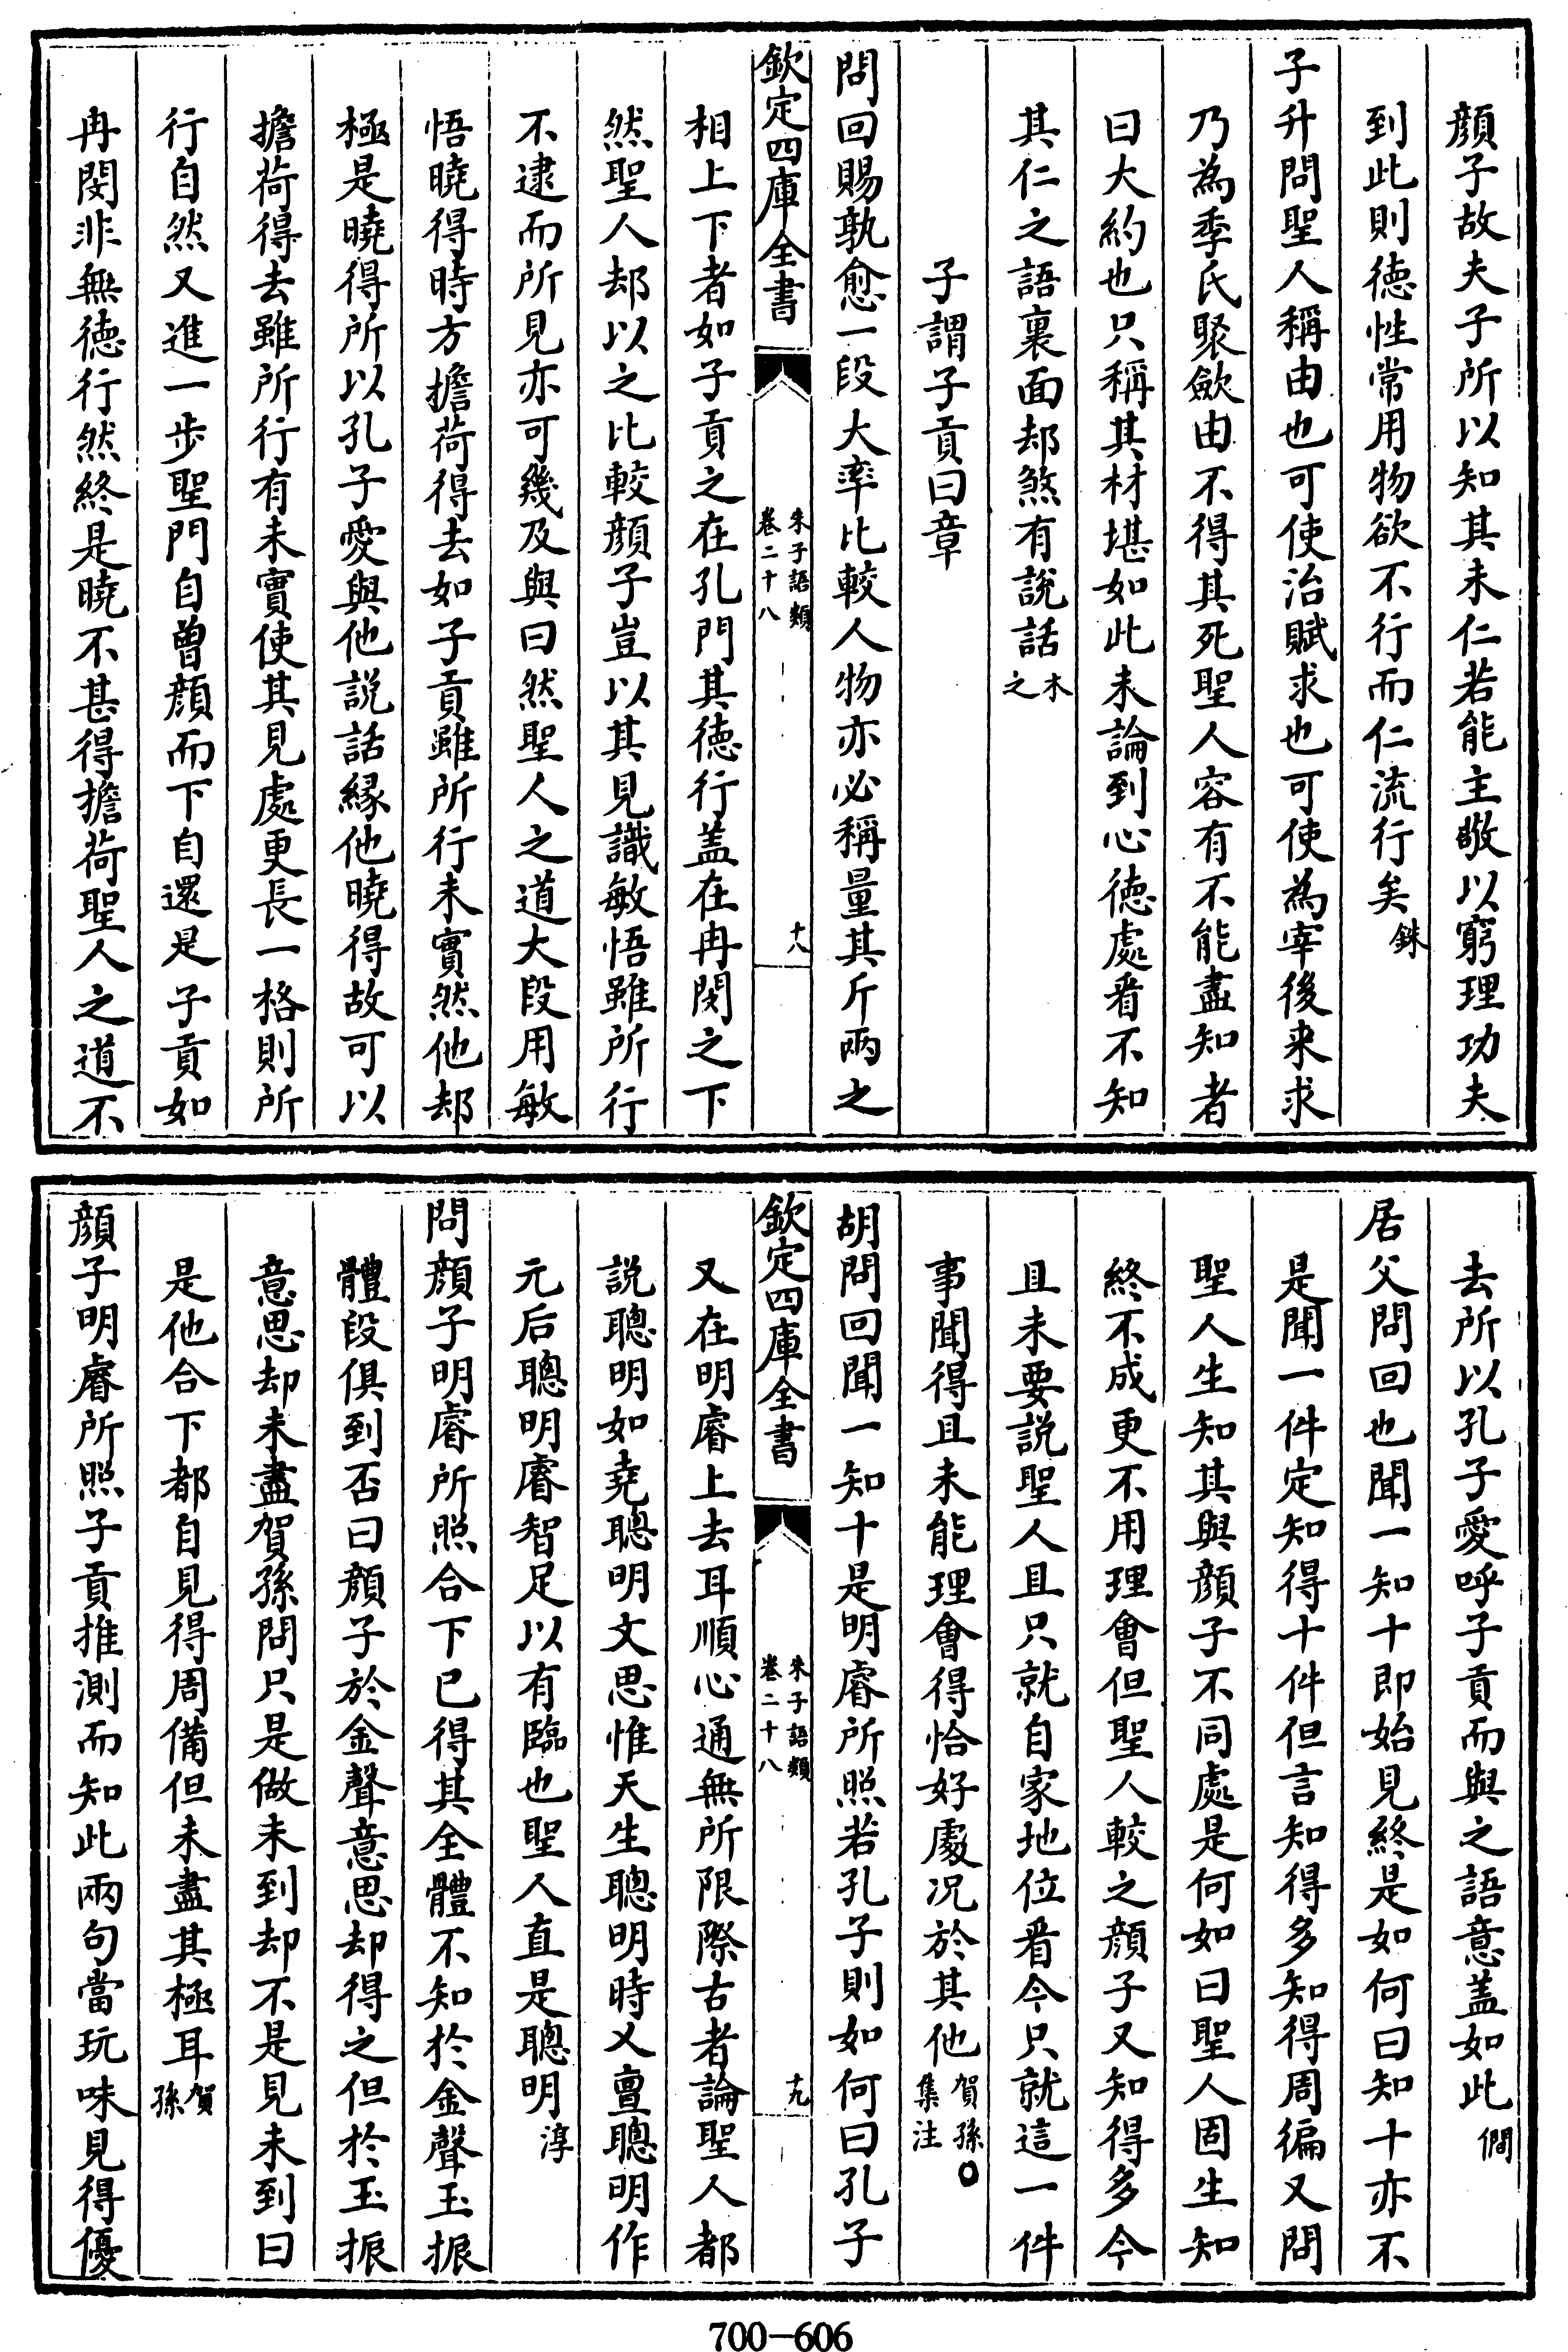 顔子故夫子所以知其未仁若能主敬以窮理功夫
到此則徳性常用物欲不行而仁流行矣銖
子升問聖人稱由也可使治賦求也可使為宰後来求
乃為季氏聚歛由不得其死聖人容有不能盡知者
曰大約也只稱其材堪如此未論到心徳處㸔不知
其仁之語裏面却煞有說話木之
子謂子貢曰章
問回賜孰愈一段大率比較人物亦必稱量其斤兩之
欽定四庫全書
朱子語類
卷二十八
十八
相上下者如子貢之在孔門其徳行盖在冉閔之下
然聖人却以之比較顔子豈以其見識敏悟雖所行
不逮而所見亦可幾及與曰然聖人之道大段用敏
悟曉得時方擔荷得去如子貢雖所行未實然他却
極是曉得所以孔子愛與他說話縁他曉得故可以
擔荷得去雖所行有未實使其見處更長一格則所
行自然又進一步聖門自曾顔而下自還是子貢如
冉閔非無徳行然終是曉不甚得擔荷聖人之道不
去所以孔子愛呼子貢而與之語意盖如此僩
居父問回也聞一知十即始見終是如何曰知十亦不
是聞一件定知得十件但言知得多知得周徧又問
聖人生知其與顔子不同處是何如曰聖人固生知
終不成更不用理會但聖人較之顔子又知得多今
且未要說聖人且只就自家地位㸔今只就這一件
事聞得且未能理會得恰好處况於其他賀孫○集注
胡問回聞一知十是明睿所照若孔子則如何曰孔子
欽定四庫全書
朱子語類
卷二十八
十九
又在明睿上去耳順心通無所限際古者論聖人都
說聰明如堯聰明文思惟天生聰明時乂亶聰明作
元后聰明睿智足以有臨也聖人直是聰明淳
問顔子明睿所照合下已得其全體不知於金聲玉振
體段俱到否曰顔子於金聲意思却得之但於玉振
意思却未盡賀孫問只是做未到却不是見未到曰
是他合下都自見得周備但未盡其極耳賀孫
顔子明睿所照子貢推測而知此兩句當玩味見得優
700-606